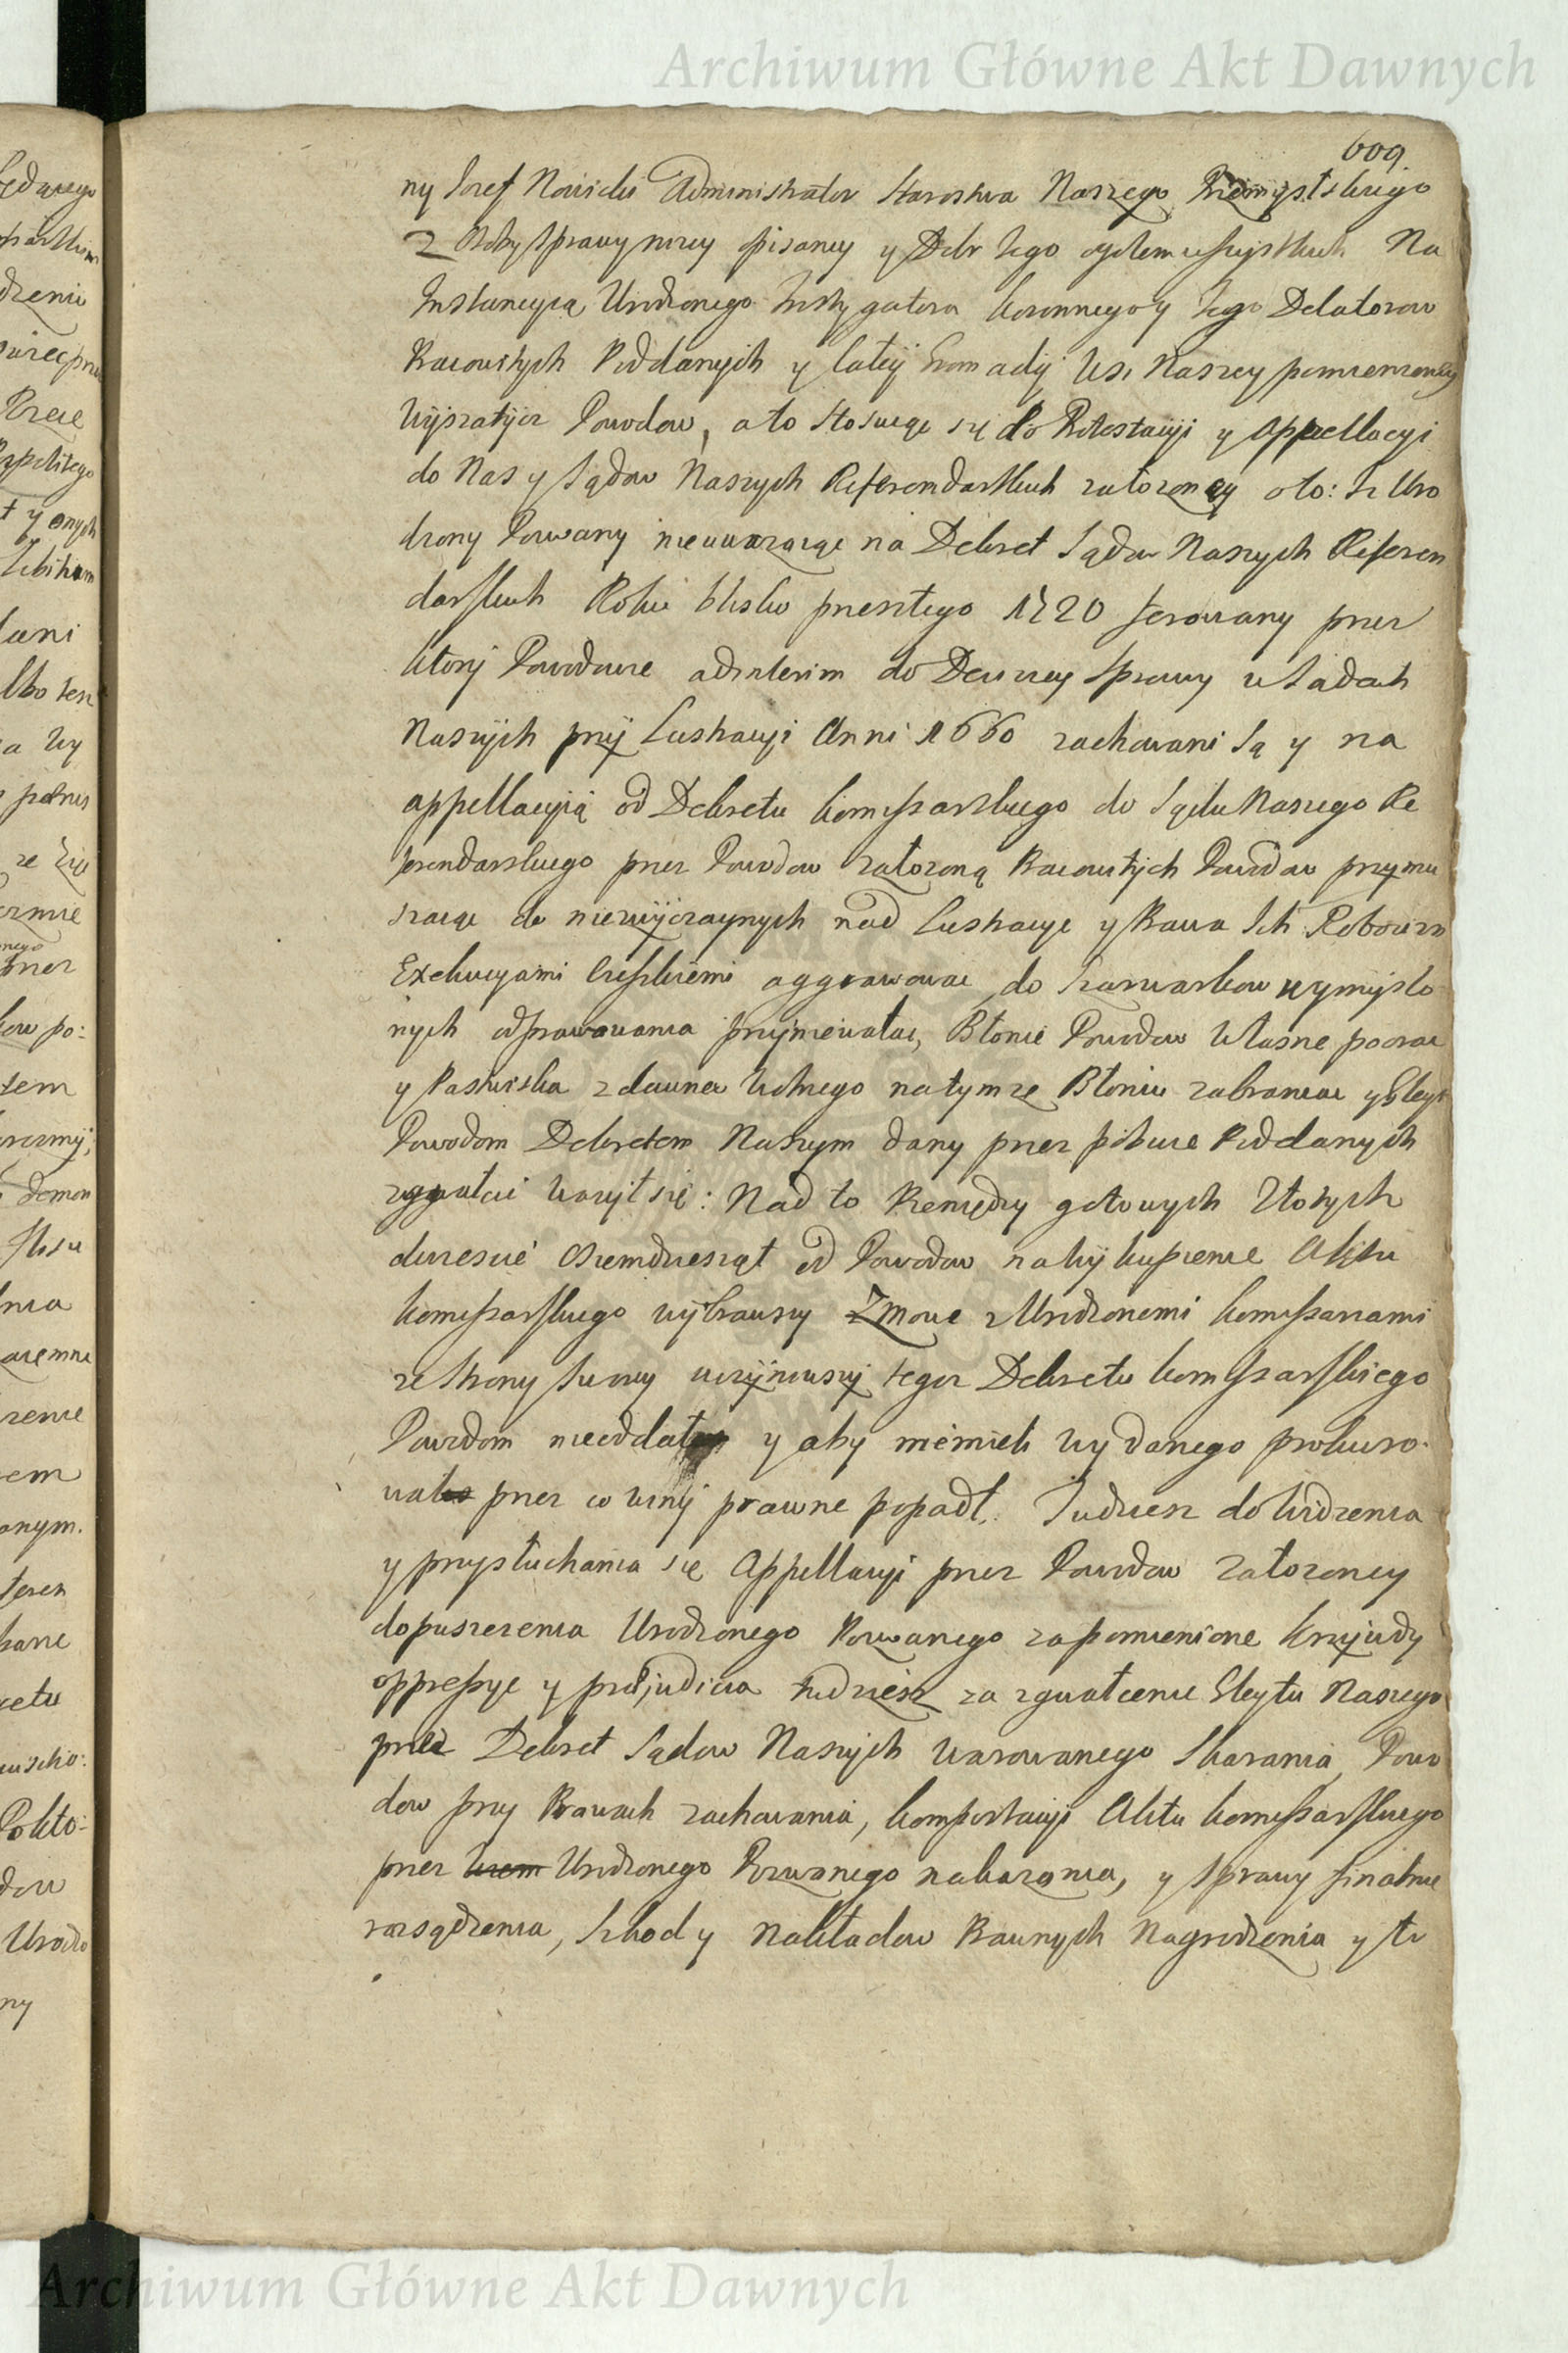 Archiwum Główne Akt Dawnych
609
ny Jozef Nowicki Administrator Starostwa Naszego Przemyslskiego
z Osoby Sprawy nizey opisaney y Dobr Jego ogołem wszystkich Na
Instancyią Urodzonego Instygatora koronnego y Jego Delatorow
Pracowitych Poddanych y całey Gromady Wsi Naszey pomienioney
Wyszztych Powodow, a to stosuiąc się do Protestacyi y Appellacyi
do Nas y Sądow Naszych Referendarskich założoney oto: Iz Uro
dzony Pozwany nieuwazaiąc na Dekret Sądow Naszych Referen
darskich Roku blisko przeszłego 1720 ferowany przez
ktory Powodowie adinterim do Decyzyi Sprawy w Sądach
Naszych przy Lustracyi Anni 1660 zachowani są y na
appellacyią od Dekretu kommissarskiego do Sądu Naszego Re
ferendarskiego przez Powodow założoną Pracowitych Powodow przymu
szaiąc do niezwyczaynych nad Lustracye y Prawa Ich Robocizn
Exekucyami Ciężkiemi aggrawować, do Szarwarkow wymyślo
nych odprawowania przyniewalać, Błonie Powodow Własne poorać
y Pastwiska zdawna Wolnego na tymze Błoniu zabraniać y Gleyt
Powodom Dekretem Naszym dany przez pobicie Poddanych
zgwałcić wazył się: Nad to Pieniędzy gotowych Złotych
dwiescie Osiemdziesiąt od Powodow na wykupienie Aktu
kommissarskiego wybrawszy Zmowe z Urodzonemi kommissarzami
ze strony swoiey uczyniwszy tegoz Dekretu kommissarskiego
Powodom nieoddał y aby nie mieli wydanego prokuro-
wał przez co winy prawne popadł. Tudziesz do widzenia
y przysłuchania się Appellacyi przez Powodow założoney
dopuszczenia Urodzonego Pozwanego za pomienione krzywdy
oppressye y præjudicia tudziesz za zgwałcenie Gleytu Naszego
przez Dekret Sądow Naszych warowanego Skarania, Powo
dow przy Prawach zachowania, komportacyi Aktu kommissarskiego
przez Urodzonego Pozwanego nakazania, y Sprawy finalnie
rozsądzenia, Szkod y Nakładow Prawnych Nagrodzenia y tu
Archiwum Główne Akt Dawnych